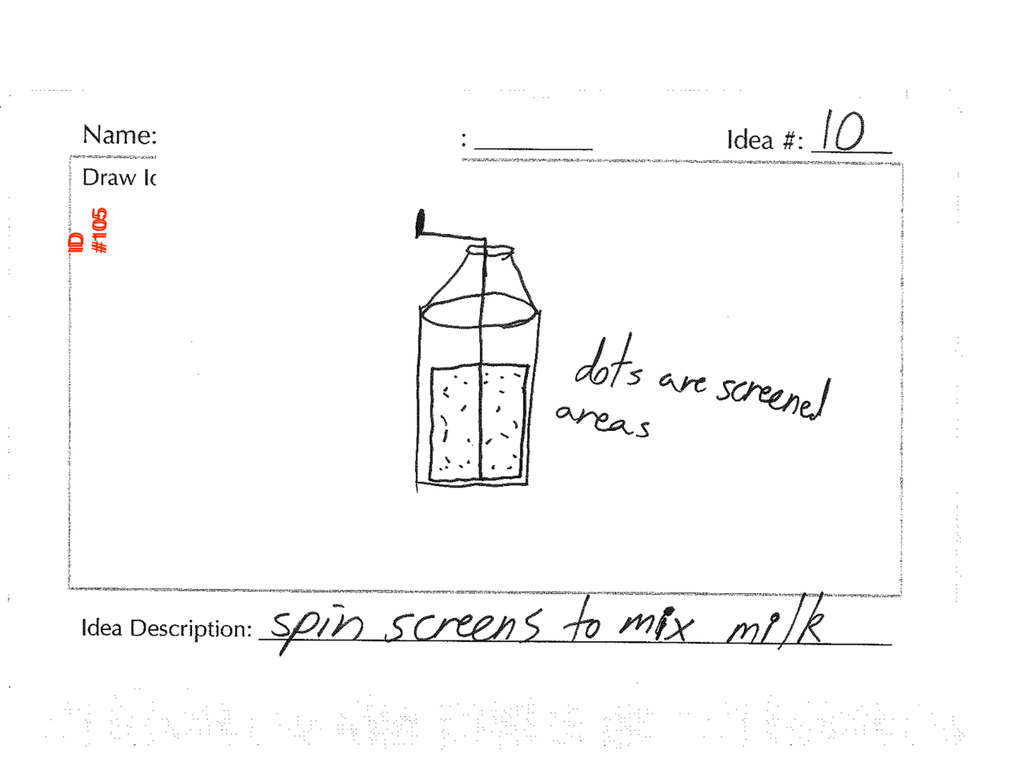 Name:
: Idea #: 10
Draw Id
ID
#105
dots are screened
areas
Idea Description: spin screens to mix milk